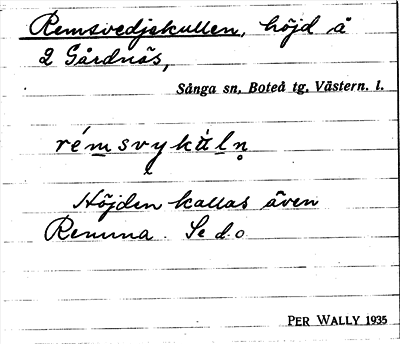 Remsvedjekullen, höjd å
2 Gårdnäs,
Sånga sn, Boteå tg, Västern. l.
rémsvykùln̥
Höjden kallas även
Remma. Se d.o.
PER WALLY 1935